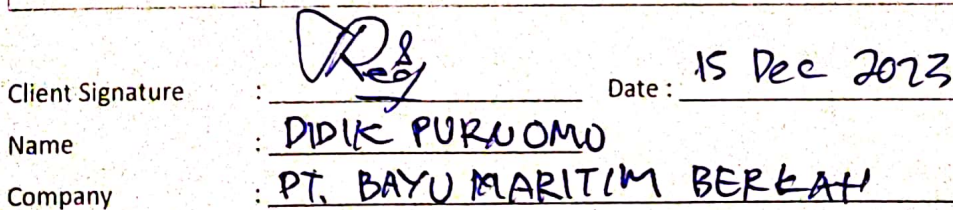 Client Signature : Date : 15 Dec 2023
Name : DIDIK PURNOMO
Company : PT. BAYU MARITIM BERKAH